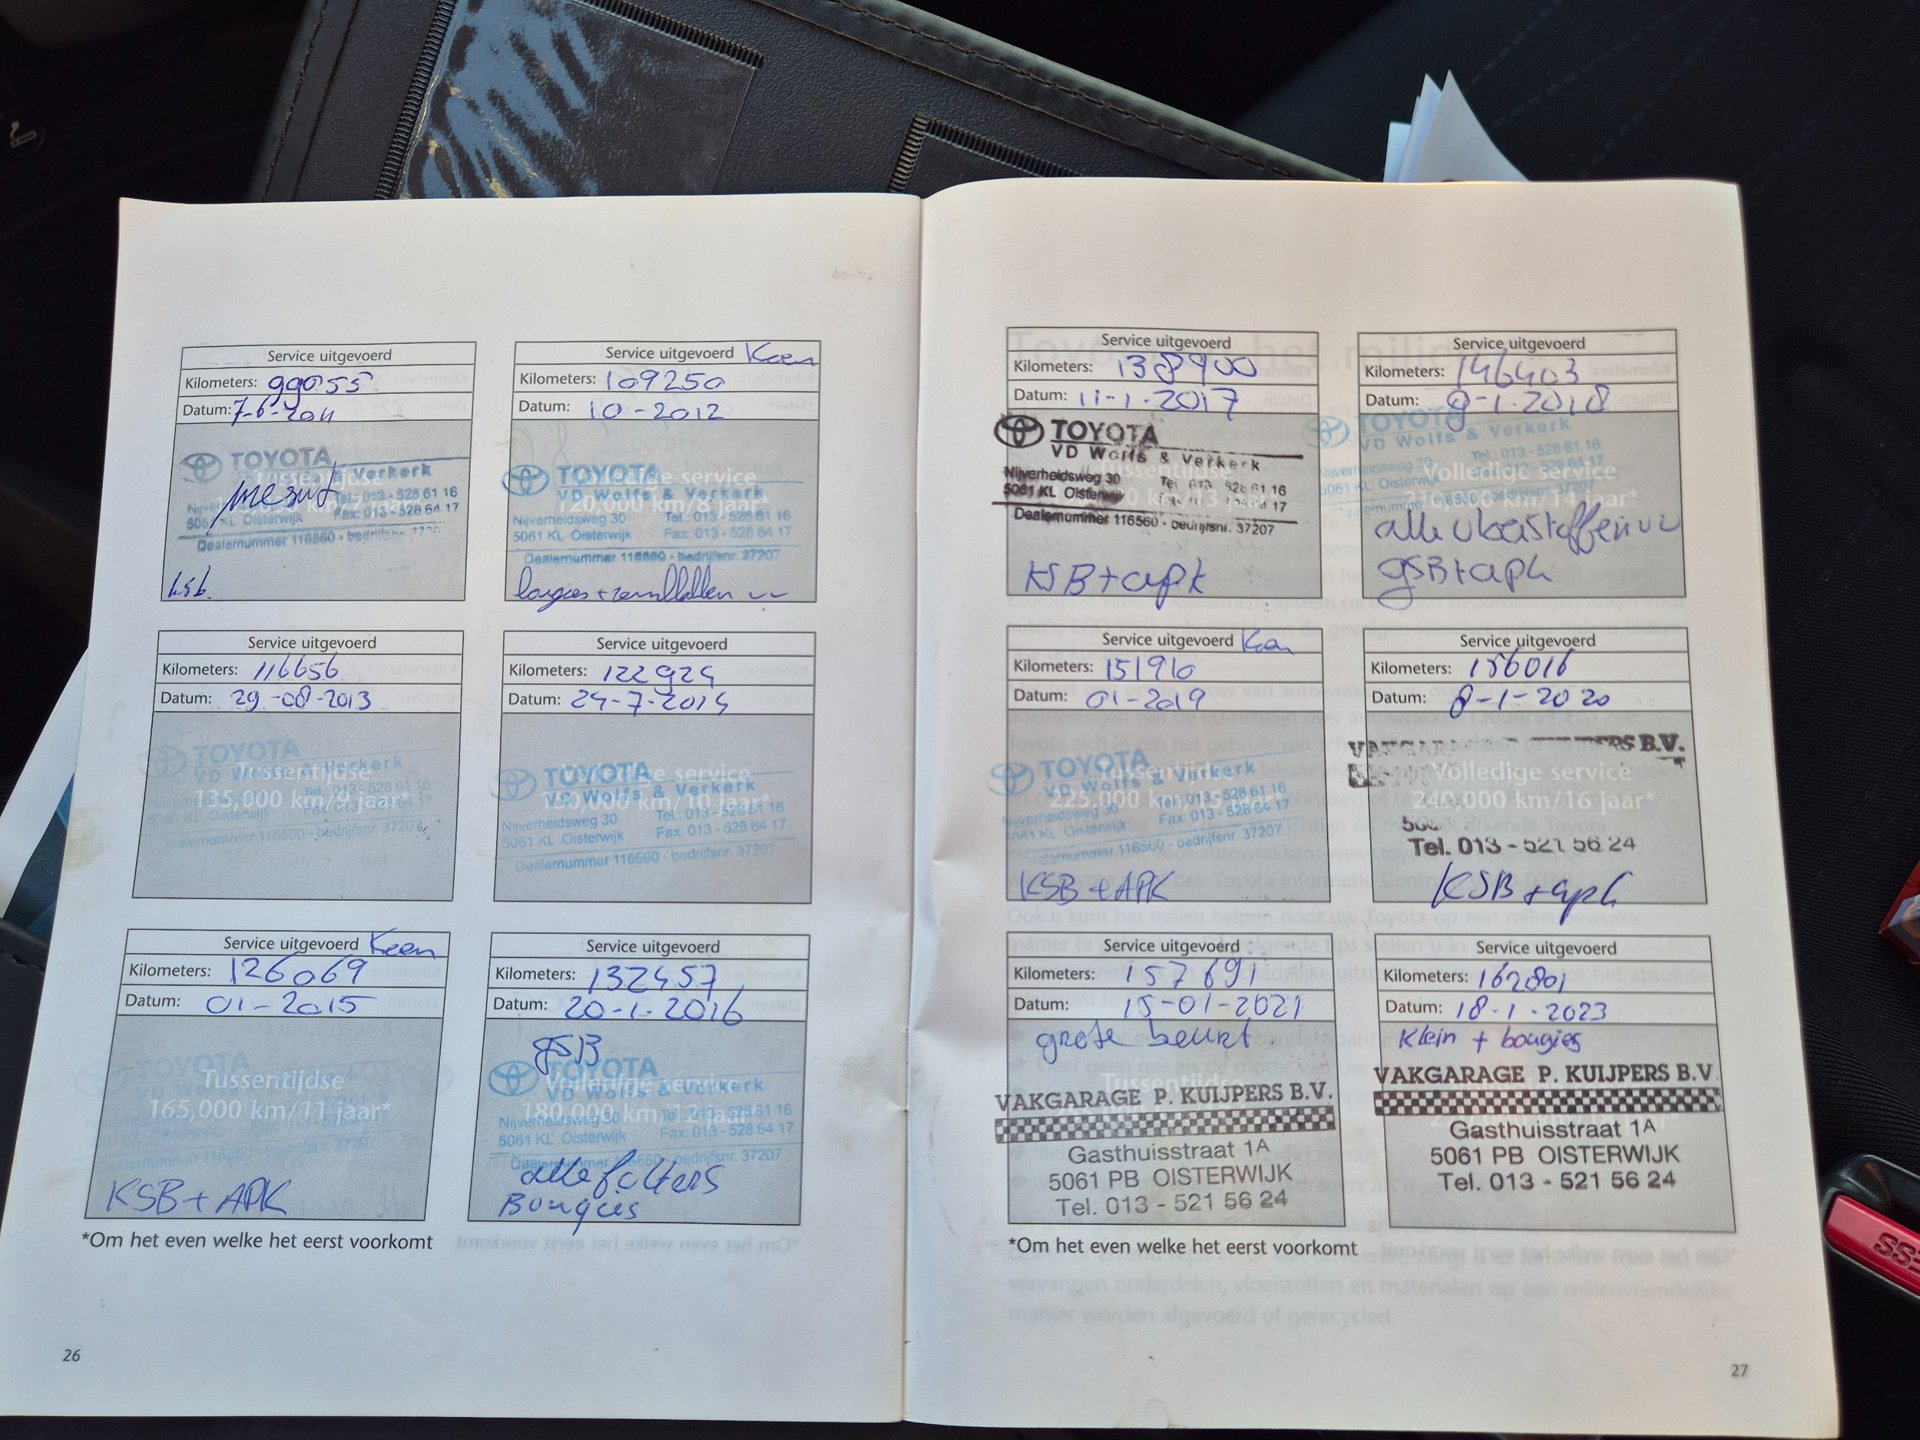 Service uitgevoerd
Kilometers: 99055
Datum: 7-6-2011
TOYOTA
& Verkerk
Tel.: 013 - 528 61 16
5061 KL Oisterwijk Fax: 013 - 528 64 17
Dealernummer 116560 - bedrijfsnr. 37207
ksb
Service uitgevoerd Keen
Kilometers: 109250
Datum: 10-2012
TOYOTA
VD Wolfs & Verkerk
120,000 km/8 jaar*
Nijverheidsweg 30 Tel.: 013 - 528 61 16
5061 KL Oisterwijk Fax: 013 - 528 64 17
Dealernummer 116560 - bedrijfsnr. 37207
bougies +
Service uitgevoerd
Kilometers: 116656
Datum: 29-08-2013
TOYOTA
VD Wolfs & Verkerk
Tussentijdse
135,000 km/9 jaar*
Tel.: 013 - 528 61 16
5061 KL Oisterwijk Fax: 013 - 528 64 17
Dealernummer 116560 - bedrijfsnr. 37207
Service uitgevoerd
Kilometers: 122924
Datum: 24-7-2014
TOYOTA
Volledige service
VD Wolfs & Verkerk
150,000 km/10 jaar*
Nijverheidsweg 30 Tel.: 013 - 528 61 16
5061 KL Oisterwijk Fax: 013 - 528 64 17
Dealernummer 116560 - bedrijfsnr. 37207
Service uitgevoerd Keen
Kilometers: 126069
Datum: 01-2015
TOYOTA
Tussentijdse
165,000 km/11 jaar*
KSB + APK
Service uitgevoerd
Kilometers: 132457
Datum: 20-1-2016
GSB
TOYOTA
Volledige service
VD Wolfs & Verkerk
180,000 km/12 jaar*
Nijverheidsweg 30 Tel.: 013 - 528 61 16
5061 KL Oisterwijk Fax: 013 - 528 64 17
Dealernummer 116560 - bedrijfsnr. 37207
alle filters
Bougies
*Om het even welke het eerst voorkomt
26
Service uitgevoerd
Kilometers: 138900
Datum: 11-1-2017
TOYOTA
VD Wolfs & Verkerk
Nijverheidsweg 30 Tel.: 013 - 528 61 16
5061 KL Oisterwijk
Dealernummer 116560 - bedrijfsnr. 37207
KSB + apk
Service uitgevoerd
Kilometers: 146403
Datum: 9-1-2018
TOYOTA
VD Wolfs & Verkerk
Volledige service
210,000 km/14 jaar*
Nijverheidsweg 30 Tel.: 013 - 528 61 16
5061 KL Oisterwijk Fax: 013 - 528 64 17
116560 - bedrijfsnr. 37207
alle vloeistoffen vv
GSB + apk
Service uitgevoerd Keen
Kilometers: 151910
Datum: 01-2019
TOYOTA
Tussentijdse
VD Wolfs & Verkerk
225,000 km/15 jaar*
Nijverheidsweg 30 Tel.: 013 - 528 61 16
5061 KL Oisterwijk Fax: 013 - 528 64 17
Dealernummer 116560 - bedrijfsnr. 37207
KSB + APK
Service uitgevoerd
Kilometers: 156016
Datum: 8-1-2020
VAKGARAGE P. KUIJPERS B.V.
Volledige service
240,000 km/16 jaar*
Tel. 013 - 521 56 24
KSB + apk
Service uitgevoerd
Kilometers: 157691
Datum: 15-01-2021
grote beurt.
VAKGARAGE P. KUIJPERS B.V.
Gasthuisstraat 1A
5061 PB OISTERWIJK
Tel. 013 - 521 56 24
Service uitgevoerd
Kilometers: 162801
Datum: 18-1-2023
Klein + bougies
VAKGARAGE P. KUIJPERS B.V.
Gasthuisstraat 1A
5061 PB OISTERWIJK
Tel. 013 - 521 56 24
*Om het even welke het eerst voorkomt
vervangen onderdelen, vloeistoffen en materialen op een milieuvriendelijke
manier worden afgevoerd of gerecycled.
27